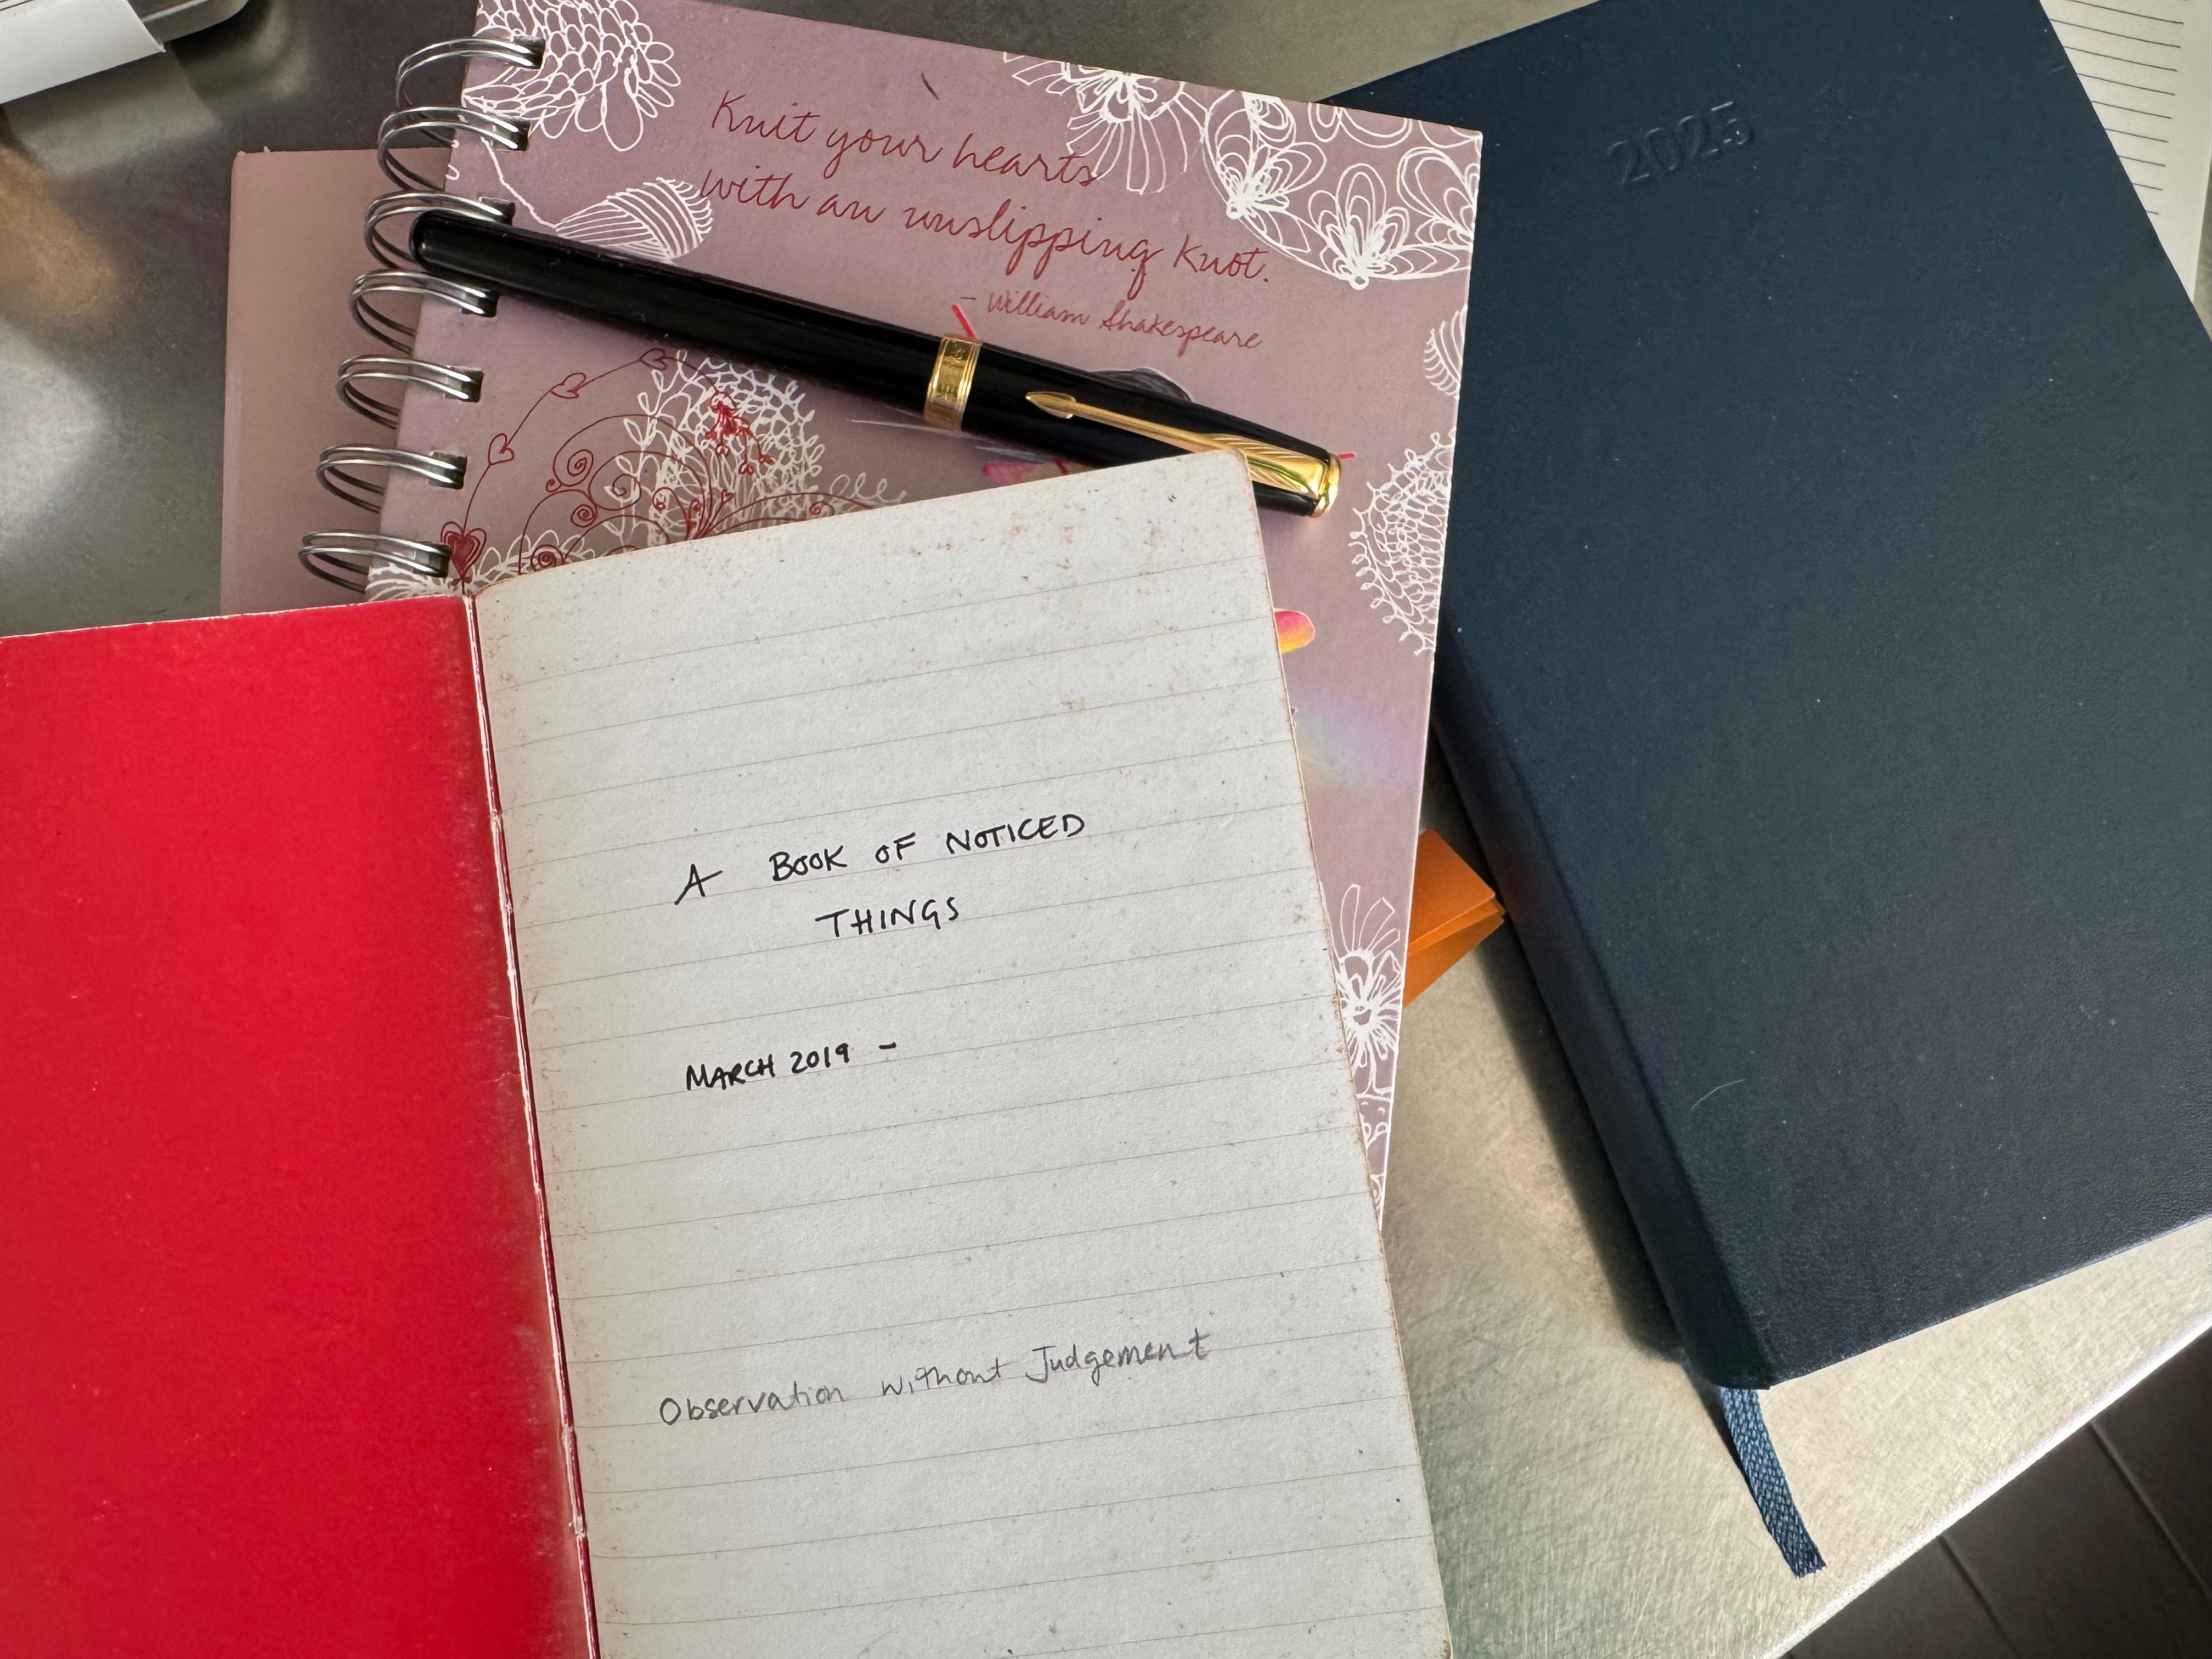 Knit your hearts
with an unslipping knot.
- William Shakespeare
2025
A BOOK OF NOTICED
THINGS
MARCH 2019 -
Observation without Judgement